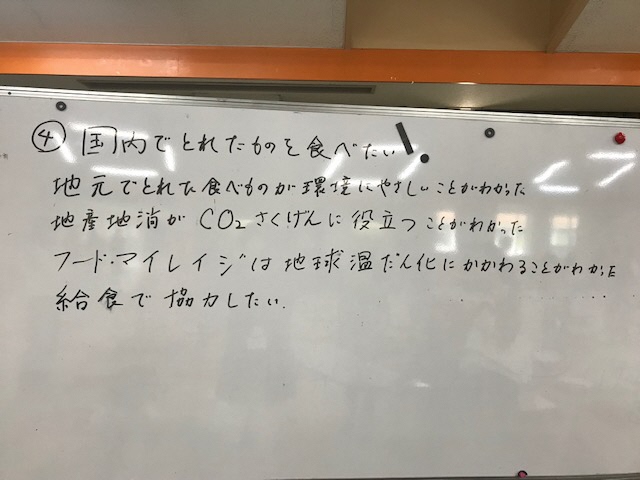 ④ 国内でとれたものを食べたい!
地元でとれた食べものが環境にやさしいことがわかった
地産地消がCO2さくげんに役立つことがわかった
フード・マイレイジは地球温だん化にかかわることがわかった
給食で協力したい.